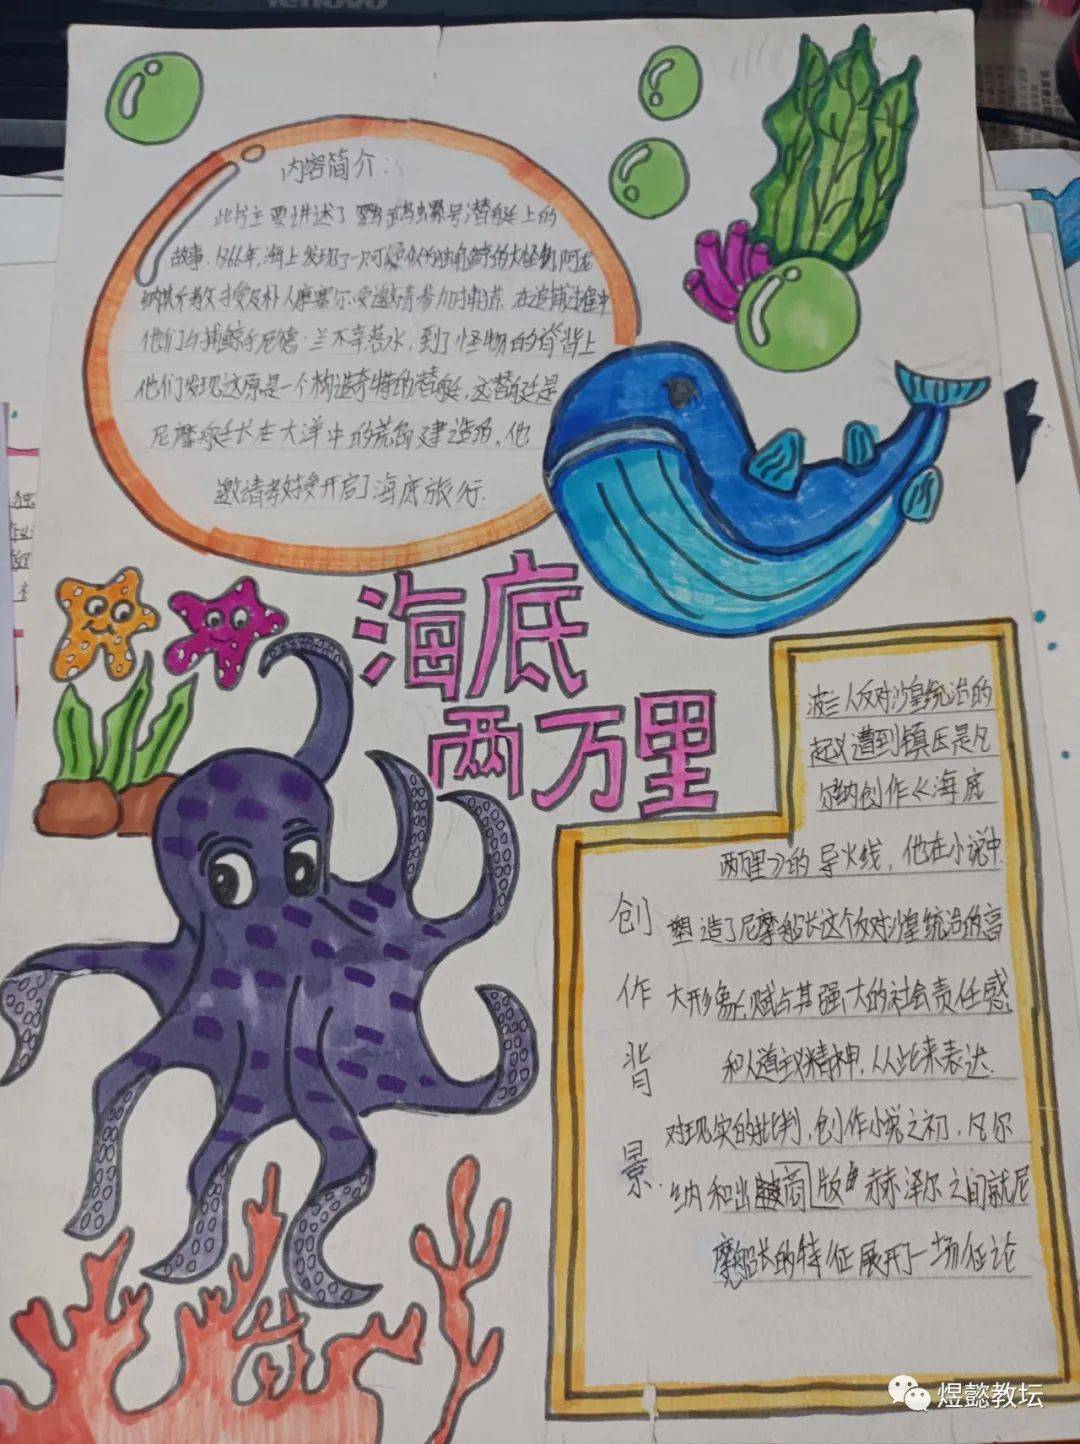 lenovo
内容简介.
此书主要讲述了鹦鹉螺号潜艇上的
故事.1866年,海上发现了一只可疑似为独角鲸的大怪物,阿龙
纳斯教授及仆人康塞尔受邀请参加追捕.在追捕过程中
他们与捕鲸手尼德·兰不幸落水,到了怪物的脊背上
他们发现这原是一个构造奇特的潜艇,这潜艇是
尼摩船长在大洋中的荒岛建造的,他
邀请教授开启了海底旅行.
海底
两万里
创作背景.
波兰人反对沙皇统治的
起义遭到镇压是凡
尔纳创作《海底
两万里》的导火线,他在小说中
塑造了尼摩船长这个反对沙皇统治的高
大形象,赋与其强大的社会责任感,
和人道主义精神,从此来表达
对现实的批判,创作小说之初,凡尔
纳和出版商赫泽尔之间就尼
摩船长的特征展开了一场征论
煜懿教坛